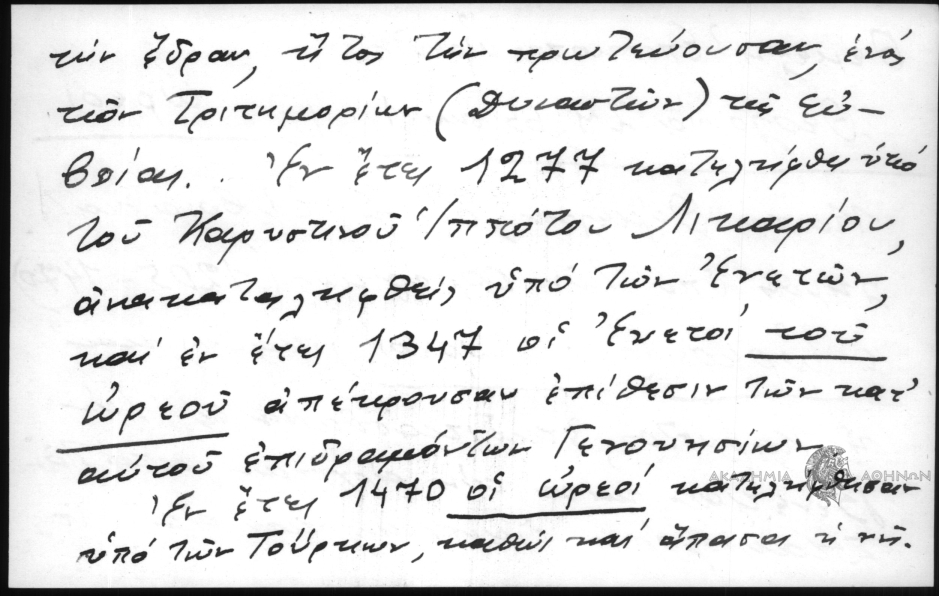 τήν ἕδραν, ἤτοι τήν πρωτεύουσαν, ἑνός
τῶν Τριτημορίων (Δυναστιῶν) τῆς Εὐ-
βοίας. Ἐν ἔτει 1277 κατελήφθη ὑπό
τοῦ Καρυστινοῦ Ἱππότου Λικαρίου,
ἀνακαταληφθείς ὑπό τῶν Ἑνετῶν,
καί ἐν ἔτει 1347 οἱ Ἑνετοί τοῦ
Ὠρεοῦ ἀπέκρουσαν ἐπίθεσιν τῶν κατ'
αὐτοῦ ἐπιδραμόντων Γενουησίων
Ἐν ἔτει 1470 οἱ Ὠρεοί κατελήφθησαν
ὑπό τῶν Τούρκων, καθώς καί ἅπασα ἡ νῆ.
ΑΚΑΔΗΜΙΑ ΑΘΗΝΩΝ